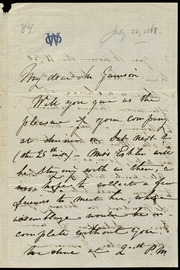 84
July 22, 1868.
My dear Mr Garrison
Will you give us the
pleasure of your company
at dinner on Sat. next
(the 25th inst) — Miss
be staying with us then, & I
hope to collect a few
friends to meet her, which
assemblage would be in
complete without you
2 P.M.